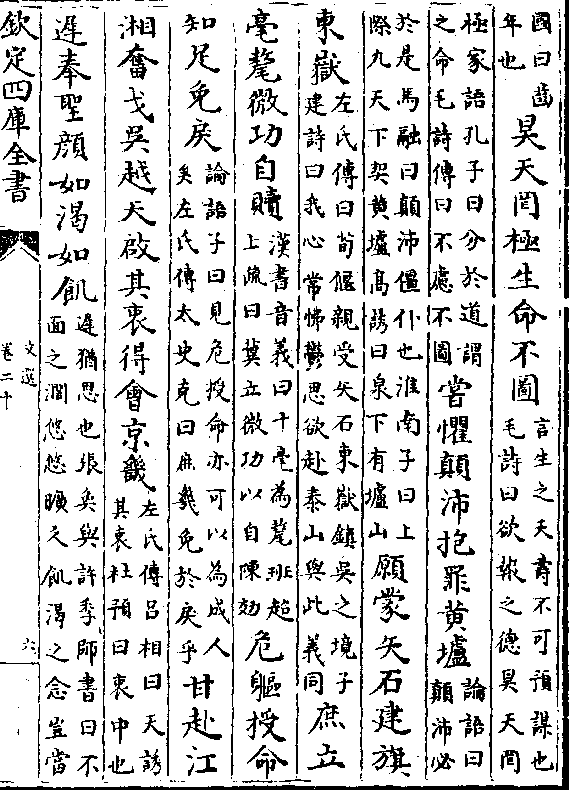 國曰齒
年也
昊天罔極生命不圖
言生之夭壽不可預謀也
毛詩曰欲報之德昊天罔
極家語孔子曰分於道謂
之命毛詩傳曰不慮不圖
嘗懼顛沛抱罪黄壚
論語曰
顛沛必
於是馬融曰顛沛僵仆也淮南子曰上
際九天下契黄壚髙誘曰泉下有壚山
願蒙矢石建旗
東嶽
左氏傳曰荀偃親受矢石東嶽鎮吳之境子
建詩曰我心常怫鬱思欲赴泰山與此義同
庶立
毫氂微功自贖
漢書音義曰十毫為氂班超
上疏曰冀立微功以自陳効
危軀授命
知足免戾
論語子曰見危授命亦可以為成人
矣左氏傳太史克曰庶幾免於戾乎
甘赴江
湘奮戈吳越天啟其衷得會京畿
左氏傳呂相曰天誘
其衷杜預曰衷中也
遲奉聖顔如渴如飢
遲猶思也張奐與許季師書曰不
面之濶悠悠曠久飢渴之念豈當
欽定四庫全書
文選
卷二十
六